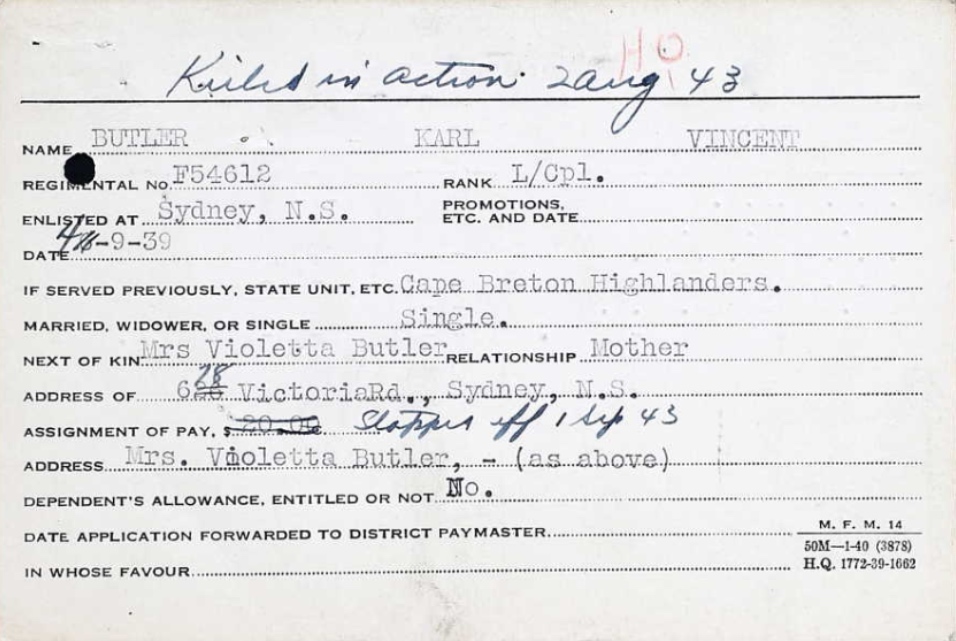 HQ
Killed in action 2 Aug 43
NAME BUTLER KARL VINCENT
REGIMENTAL No. F54612 RANK L/Cpl.
ENLISTED AT Sydney, N.S. PROMOTIONS, ETC. AND DATE
DATE -9-39
IF SERVED PREVIOUSLY, STATE UNIT, ETC. Cape Breton Highlanders.
MARRIED, WIDOWER, OR SINGLE Single.
NEXT OF KIN Mrs Violetta Butler RELATIONSHIP Mother
ADDRESS OF 628 VictoriaRd., Sydney, N.S.
ASSIGNMENT OF PAY, $ 20.00 Stopped eff 1 Sep 43
ADDRESS Mrs. Violetta Butler, - (as above)
DEPENDENT'S ALLOWANCE, ENTITLED OR NOT No.
DATE APPLICATION FORWARDED TO DISTRICT PAYMASTER
IN WHOSE FAVOUR
M. F. M. 14
50M—1-40 (3878)
H.Q. 1772-39-1662